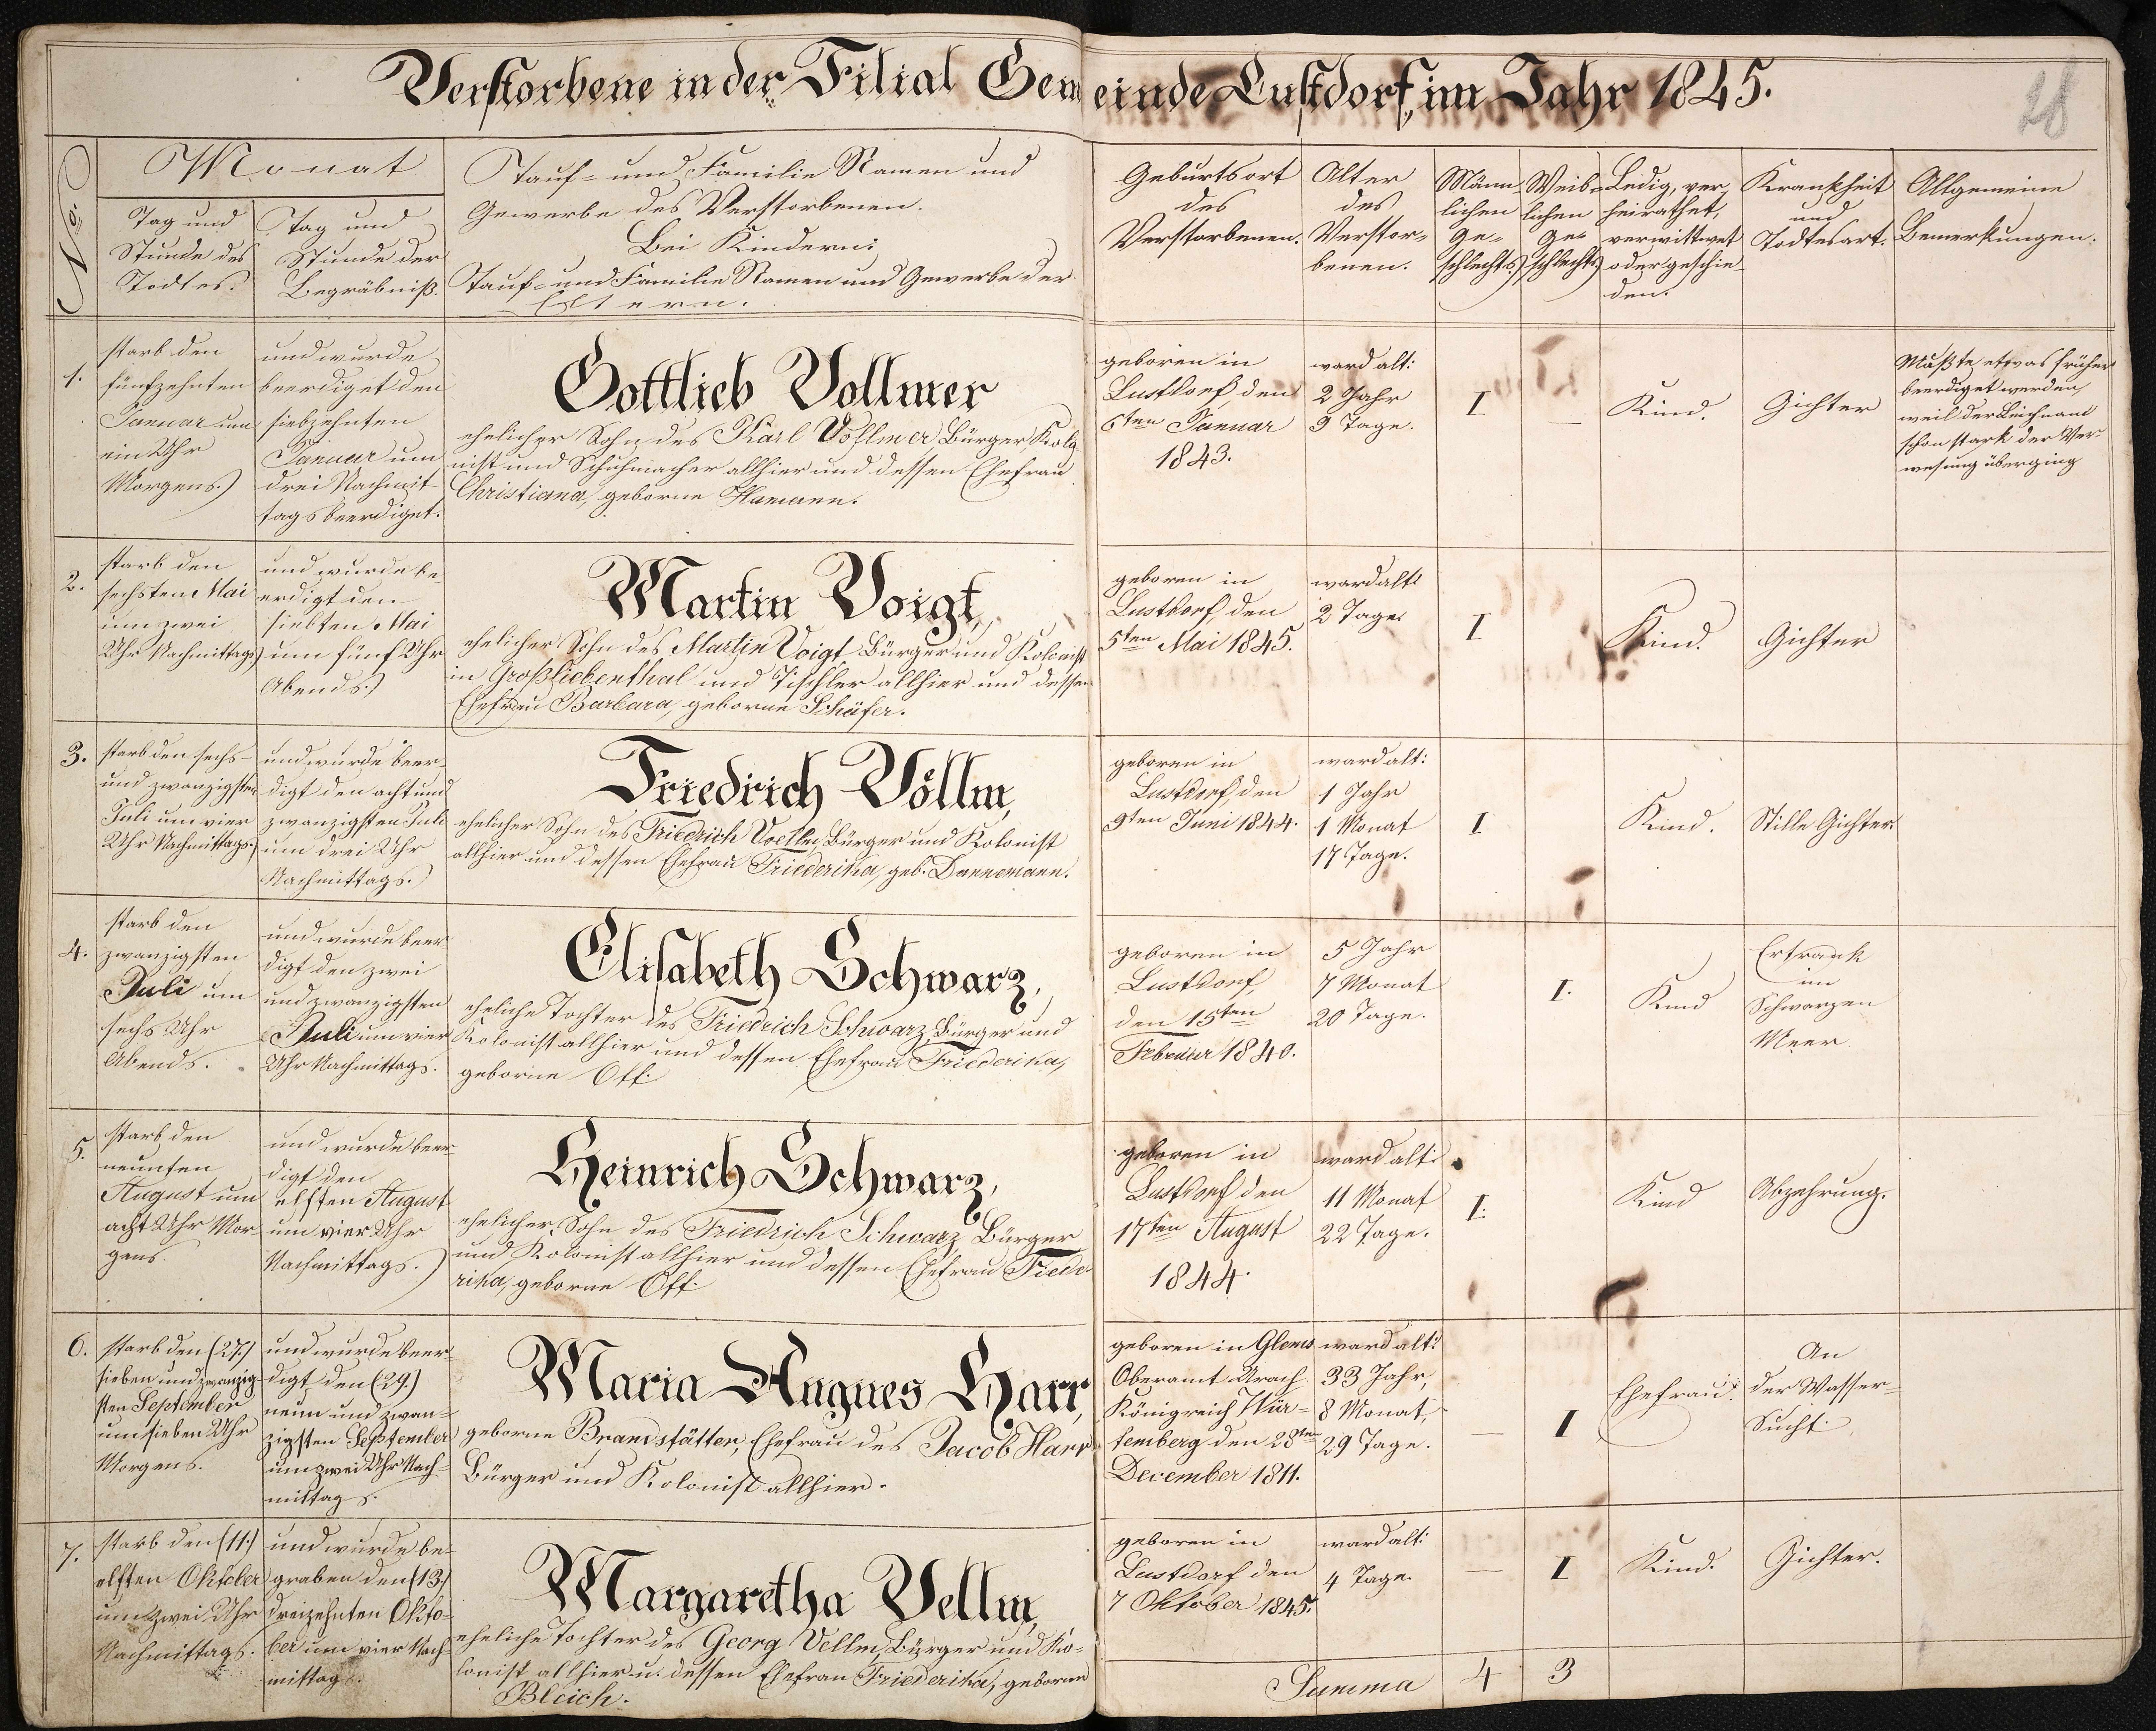 Verstorbene in der Filial Gemeinde Lustdorf, im Jahr 1845.
28
No
Monat
Tag und
Stunde des
Todtes.
Tag und
Stunde der
Begräbniß.
Tauf- und Familie Namen und
Gewerbe des Verstorbenen.
Bei Kindern:
Tauf- und Familie Namen und Gewerbe der
Eltern.
Geburtsort
des
Verstorbenen.
Alter
des
Verstor-
benen.
Männ
lichen
Ge-
schlechts
Weib-
lichen
Ge-
schlechts
Ledig, ver,
heirathet,
verwittwet
oder geschie-
den.
Krankheit
und
Todtesart.
Allgemeine
Bemerkungen.
1.
starb den
fünfzehnten
Januar um
ein Uhr
Morgens.)
und wurde
beerdiget den
siebzehnten
Januar um
drei Nachmit-
tags beerdiget.
Gottlieb Vollmer
ehelicher Sohn des Karl Vollmer Bürger, Kolo
nist und Schuhmacher allhier und dessen Ehefrau
Christiana, geborne Hamann.
geboren in
Lustdorf, den
6ten Januar
1843.
ward alt:
2 Jahr
9 Tage.
I
—
Kind.
Gichter
Mußte etwas früher
beerdiget werden,
weil der Leichnam
schon stark der Ver-
wesung überging
2.
starb den
sechsten Mai
um zwei
Uhr Nachmittags)
und wurde be-
erdigt den
siebten Mai
um fünf Uhr
Abends.)
Martin Voigt,
ehelicher Sohn des Martin Voigt Bürger und Kolonist
in Großliebenthal und Tischler allhier und dessen
Ehefrau Barbara, geborne Schäfer.
geboren in
Lustdorf, den
5ten Mai 1845.
ward alt:
2 Tage.
I
Kind.
Gichter
3.
starb den sechs-
und zwanzigsten
Juli um vier
Uhr Nachmittags.)
und wurde beer-
digt den acht und
zwanzigsten Juli
um drei Uhr
Nachmittags.)
Friedrich Völlm,
ehelicher Sohn des Friedrich Voellm, Bürger und Kolonist
allhier und dessen Ehefrau Friederika, geb. Dannemann.
geboren in
Lustdorf, den
9ten Juni 1844.
ward alt:
1 Jahr
1 Monat
17 Tage.
I
Kind.
Stille Gichter
4.
starb den
zwanzigsten
Juli um
sechs Uhr
Abends.
und wurde beer
digt den zwei
und zwanzigsten
Juli um vier
Uhr Nachmittags.
Elisabeth Schwarz,
eheliche Tochter des Friedrich Schwarz, Bürger und
Kolonist allhier und dessen Ehefrau Friederika,
geborne Ott.
geboren in
Lustdorf,
den 15ten
Februar 1840.
5 Jahr
7 Monat
20 Tage.
I.
Kind
Ertrank
im
Schwarzen
Meer.
5.
starb den
neunten
August um
acht Uhr Mor
gens.
und wurde beer
digt den
elften August
um vier Uhr
Nachmittags.)
Heinrich Schwarz,
ehelicher Sohn des Friedrich Schwarz Bürger
und Kolonist allhier und dessen Ehefrau Friede-
rika, geborne Ott.
geboren in
Lustdorf den
17ten August
1844.
ward alt:
11 Monat
22 Tage.
I.
Kind
Abzehrung.
6.
starb den (27.)
sieben und zwanzig
sten September
um sieben Uhr
Morgens.
und wurde beer-
digt, den (29.)
neun und zwan-
zigsten September
um zwei Uhr Nach
mittags.
Maria Augnes Harr,
geborne Brandstätter, Ehefrau des Jacob Harr
Bürger und Kolonist allhier.
geboren in Glems
Oberamt Urach
Königreich Wür-
temberg den 28ten
December 1811.
ward alt:
33 Jahr,
8 Monat,
29 Tage.
—
I
Ehefrau.
An
der Wasser-
Sucht.
7.
starb den (11.)
elften Oktober
um zwei Uhr
Nachmittags.
und wurde be-
graben den (13.)
dreizehnten Okto-
ber um vier Nach-
mittag.
Margaretha Vellm,
eheliche Tochter des Georg Vellm, Bürger und Ko-
lonist allhier u. dessen Ehefrau Friederika, geborne
Bleich.
geboren in
Lustdorf den
7 Oktober 1845.
ward alt:
4 Tage.
—
I
Kind.
Gichter.
Summa
4
3